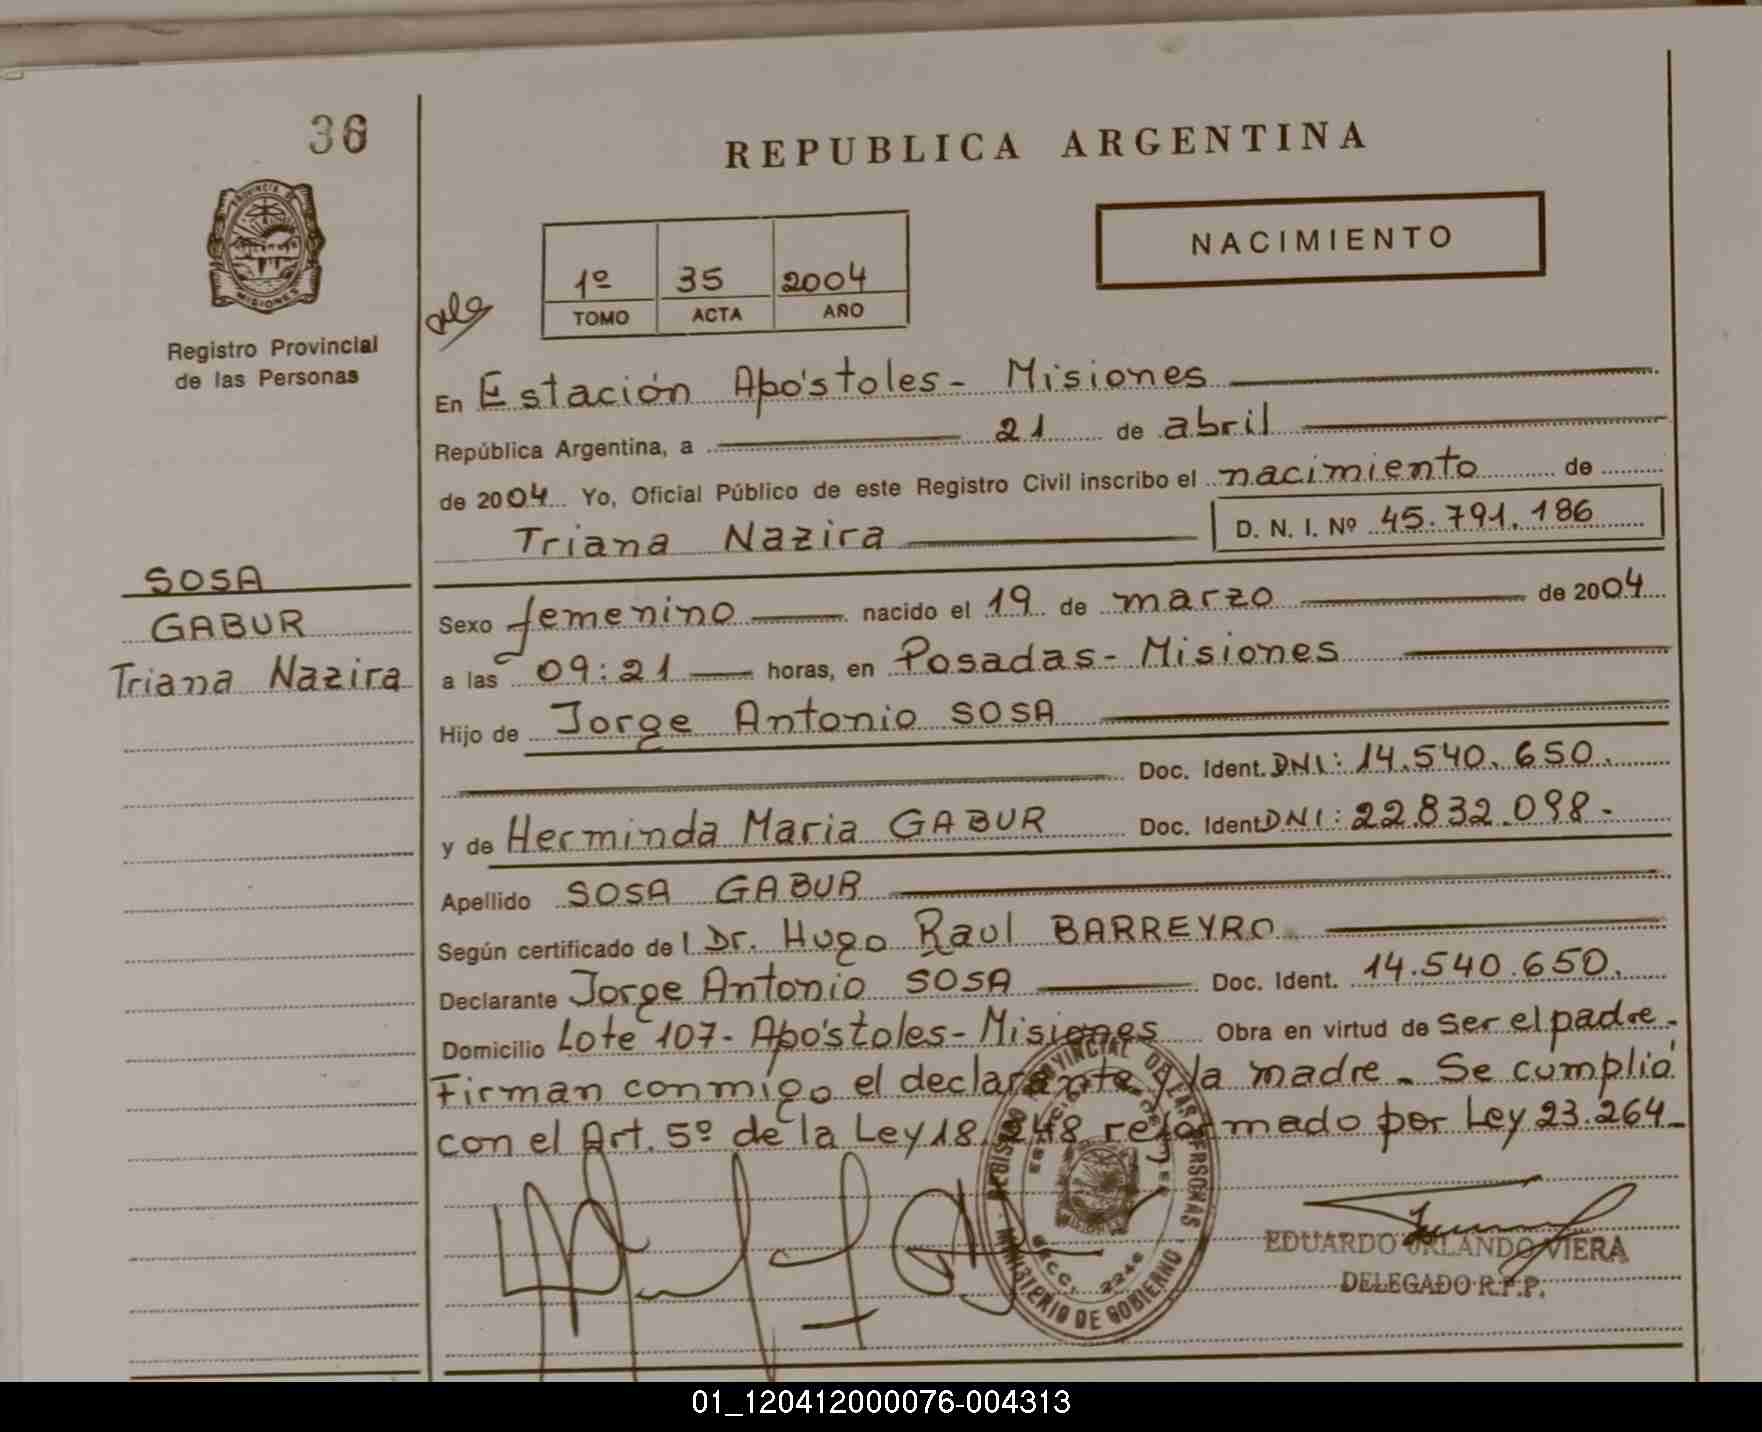 36
REPUBLICA ARGENTINA
PROVINCIA DE
MISIONES
Registro Provincial
de las Personas
NACIMIENTO
1º 35 2004
TOMO ACTA AÑO
En Estación Apóstoles - Misiones
República Argentina, a 21 de abril
de 2004 Yo, Oficial Público de este Registro Civil inscribo el nacimiento de
Triana Nazira D. N. I. Nº 45.791.186
SOSA
GABUR
Triana Nazira
Sexo femenino nacido el 19 de marzo de 2004
a las 09:21 horas, en Posadas - Misiones
Hijo de Jorge Antonio SOSA
Doc. Ident. DNI: 14.540.650.
y de Herminda Maria GABUR Doc. Ident DNI: 22.832.098.-
Apellido SOSA GABUR
Según certificado de l Dr. Hugo Raul BARREYRO
Declarante Jorge Antonio SOSA Doc. Ident. 14.540.650.
Domicilio Lote 107 - Apóstoles - Misiones Obra en virtud de ser el padre.-
Firman conmigo el declarante y la madre.- Se cumplió
con el Art. 5º de la Ley 18.248 reformado por Ley 23.264.-
REGISTRO PROVINCIAL DE LAS PERSONAS
MINISTERIO DE GOBIERNO
EDUARDO ORLANDO VIERA
DELEGADO R.P.P.
01_120412000076-004313